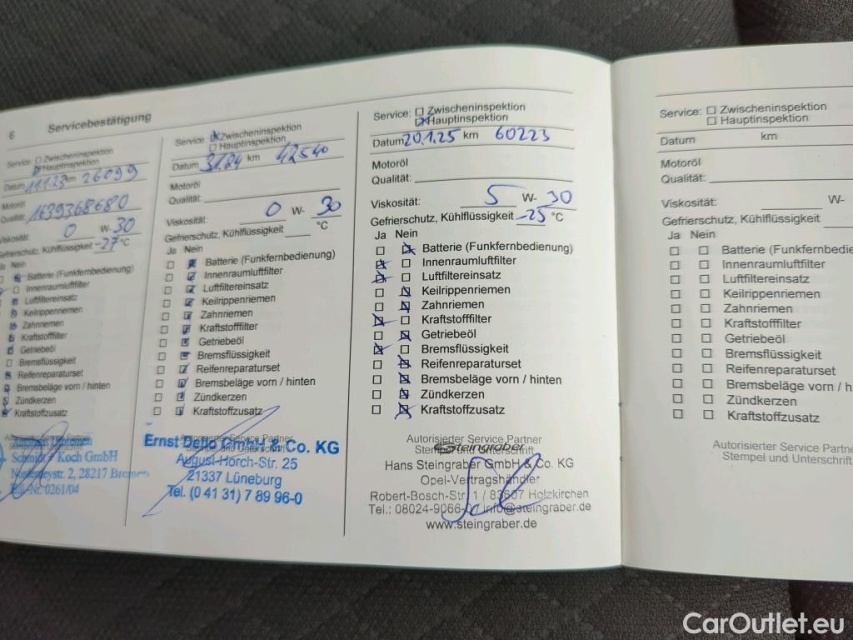 6 Servicebestätigung
Service: ☐ Zwischeninspektion
☒ Hauptinspektion
Datum 11.1.23 km 26099
Motoröl
Qualität: 1639368680
Viskosität: 0 W-30
Gefrierschutz, Kühlflüssigkeit -27 °C
Ja Nein
Batterie (Funkfernbedienung)
Innenraumluftfilter
Luftfiltereinsatz
Keilrippenriemen
Zahnriemen
Kraftstofffilter
Getriebeöl
Bremsflüssigkeit
Reifenreparaturset
Bremsbeläge vorn / hinten
Zündkerzen
Kraftstoffzusatz
Schmidt + Koch GmbH
2, 28217 Bremen
0261/04
Service: ☒ Zwischeninspektion
☐ Hauptinspektion
Datum km 42540
Motoröl
Qualität:
Viskosität: 0 W- 30
Gefrierschutz, Kühlflüssigkeit °C
Ja Nein
☐ ☒ Batterie (Funkfernbedienung)
☐ ☒ Innenraumluftfilter
☐ ☒ Luftfiltereinsatz
☐ ☒ Keilrippenriemen
☐ ☒ Zahnriemen
☐ ☒ Kraftstofffilter
☐ ☒ Getriebeöl
☐ ☒ Bremsflüssigkeit
☐ ☒ Reifenreparaturset
☐ ☒ Bremsbeläge vorn / hinten
☐ ☒ Zündkerzen
☐ ☒ Kraftstoffzusatz
Service Partner
Stempel und Unterschrift
Ernst Dello GmbH & Co. KG
August-Horch-Str. 25
21337 Lüneburg
Tel. (0 41 31) 7 89 96-0
Service: ☐ Zwischeninspektion
☒ Hauptinspektion
Datum 20.1.25 km 60223
Motoröl
Qualität:
Viskosität: 5 W- 30
Gefrierschutz, Kühlflüssigkeit -25 °C
Ja Nein
☐ ☒ Batterie (Funkfernbedienung)
☒ ☐ Innenraumluftfilter
☒ ☐ Luftfiltereinsatz
☐ ☒ Keilrippenriemen
☐ ☒ Zahnriemen
☒ ☐ Kraftstofffilter
☐ ☒ Getriebeöl
☒ ☐ Bremsflüssigkeit
☐ ☒ Reifenreparaturset
☐ ☒ Bremsbeläge vorn / hinten
☐ ☒ Zündkerzen
☐ ☒ Kraftstoffzusatz
Autorisierter Service Partner
Stempel und Unterschrift
Steingraber
Hans Steingraber GmbH & Co. KG
Opel-Vertragshändler
Robert-Bosch-Str. 1 / 83607 Holzkirchen
Tel.: 08024-9066- info@steingraber.de
www.steingraber.de
Service: ☐ Zwischeninspektion
☐ Hauptinspektion
Datum km
Motoröl
Qualität:
Viskosität: W-
Gefrierschutz, Kühlflüssigkeit
Ja Nein
☐ ☐ Batterie (Funkfernbedie
☐ ☐ Innenraumluftfilter
☐ ☐ Luftfiltereinsatz
☐ ☐ Keilrippenriemen
☐ ☐ Zahnriemen
☐ ☐ Kraftstofffilter
☐ ☐ Getriebeöl
☐ ☐ Bremsflüssigkeit
☐ ☐ Reifenreparaturset
☐ ☐ Bremsbeläge vorn / h
☐ ☐ Zündkerzen
☐ ☐ Kraftstoffzusatz
Autorisierter Service Partne
Stempel und Unterschrift
CarOutlet.eu